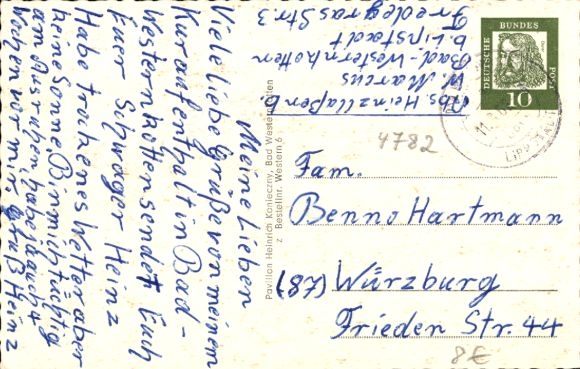 Meine Lieben
Viele liebe Grüße von meinem
Kuraufenthalt in Bad-
Westernkotten sendet Euch
Euer Schwager Heinz
Habe trockenes Wetter aber
keine Sonne Bin mich tüchtig
am Ausruhen, habe ja auch 4
Wochen vor mir Gruß Heinz
Pavillon Heinrich Konieczny, Bad Westernkotten
z Bestellnr. Western 6
Abs. Heinz
W. Marcus
Bad-Westernkotten
b. Lipstadt
Str. 3
DEUTSCHE BUNDESPOST
10
LIPPSTADT
4782
Fam.
Benno Hartmann
(87) Würzburg
Frieden Str. 44
8€